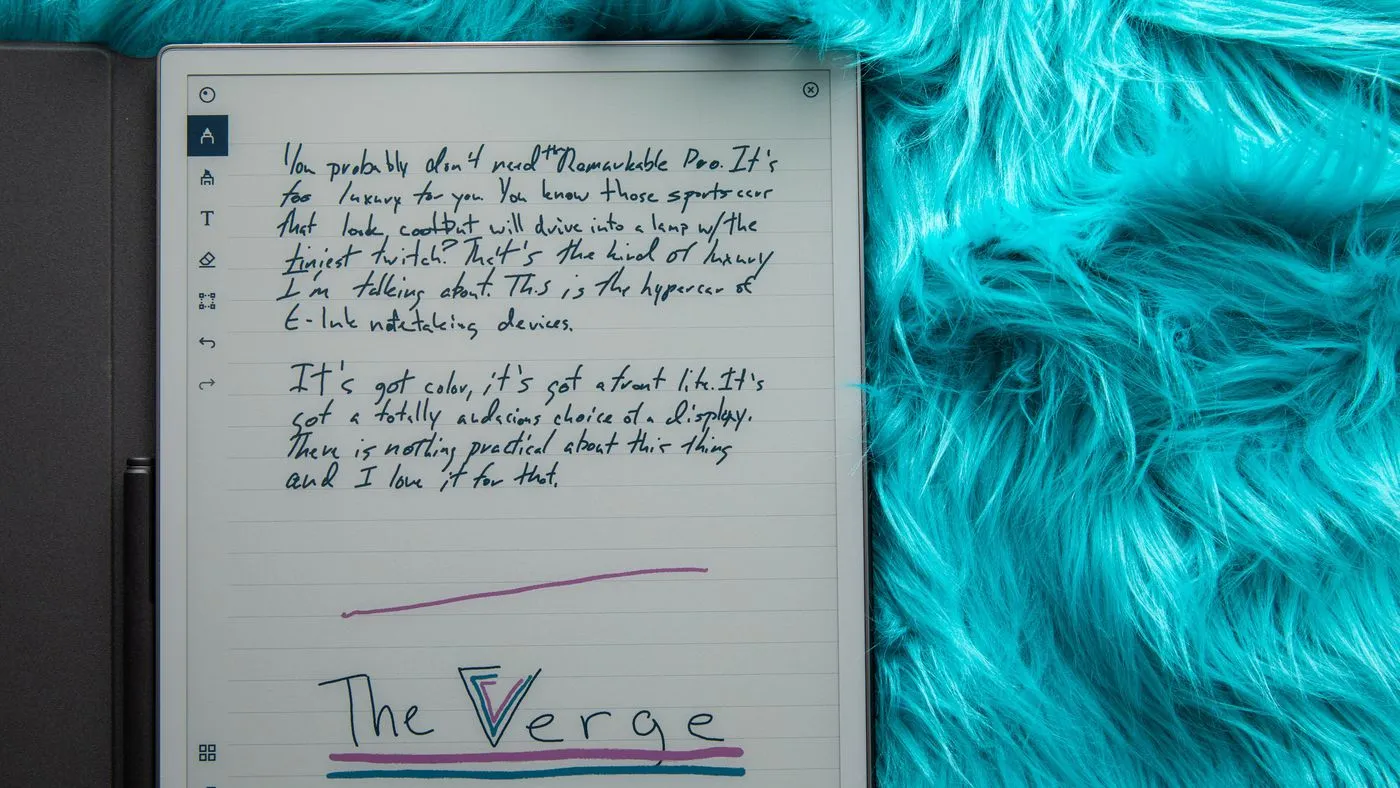 T
You probably don't need the Remarkable Pro. It's
too luxury for you. You know those sports car
that look cool but will drive into a lamp w/ the
tiniest twitch? That's the kind of luxury
I'm talking about. This is the hypercar of
E-Ink notetaking devices.
It's got color, it's got a front lite. It's
got a totally audacious choice of a display.
There is nothing practical about this thing
and I love it for that.
The Verge